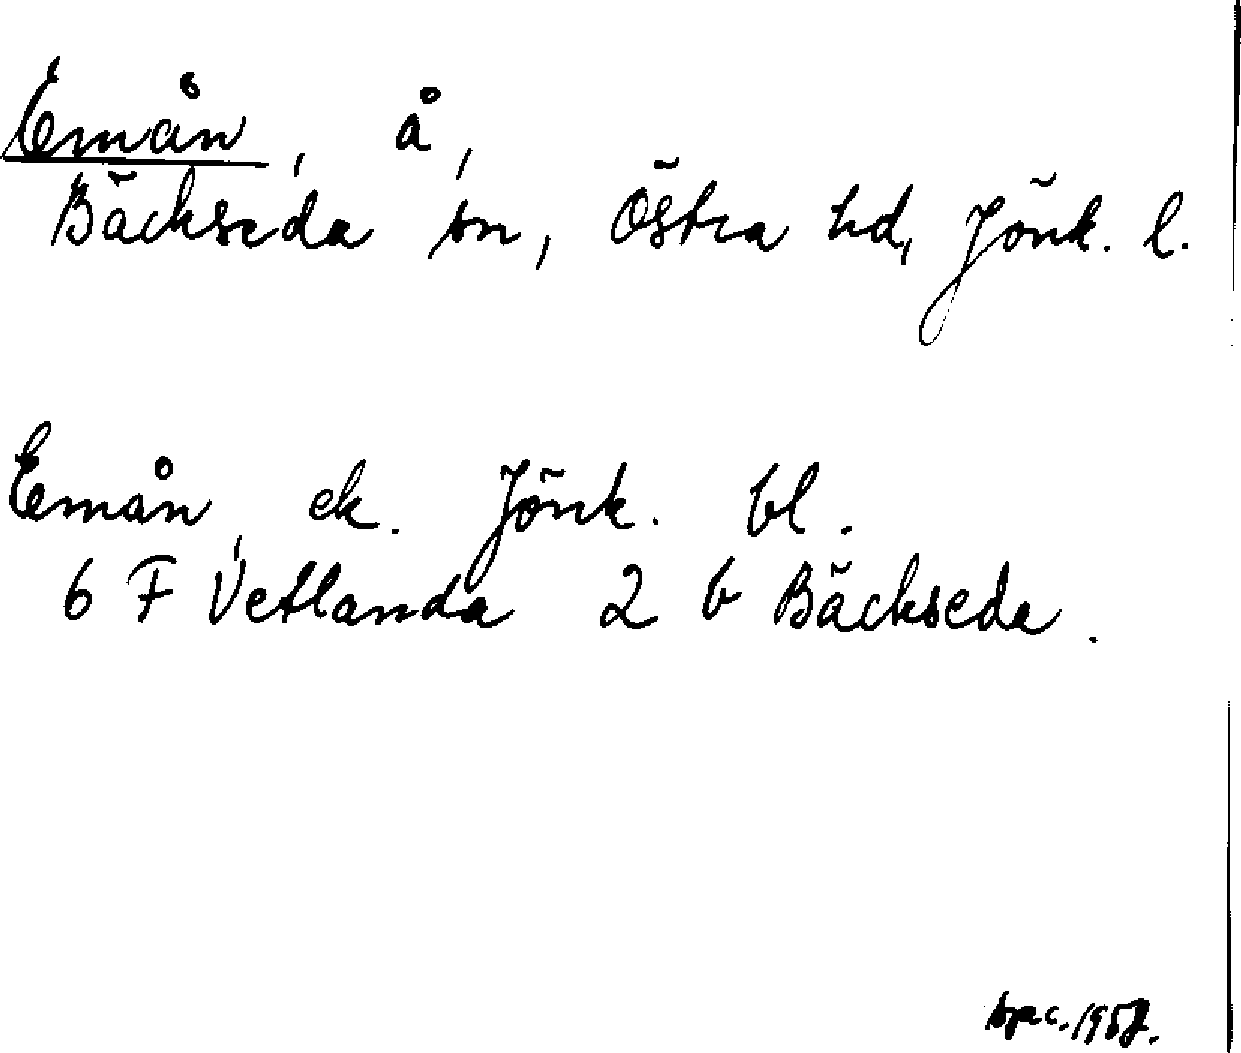 Emån, å,
Bäckseda sn, Östra hd, Jönk. l.
Emån, ek. Jönk. bl.
6 F Vetlanda 2 b Bäckseda.